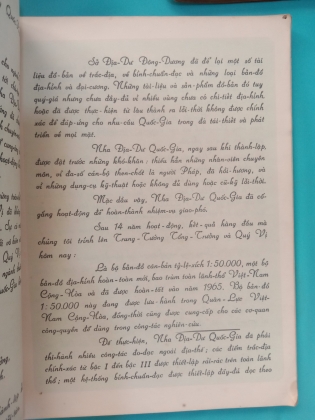 Sở Địa-Dư Đông-Dương đã để lại một số tài
liệu đồ-bản về trắc-địa, về bình-chuẩn-đạc và những loại bản-đồ
địa-hình và đại-cương. Những tài-liệu và sản-phẩm đồ-bản đó tuy
quý-giá nhưng chưa đầy-đủ vì nhiều vùng chưa có chi-tiết địa-hình
hoặc đã được thực-hiện từ lâu thành ra lỗi-thời không được chính
xác để đáp-ứng cho nhu-cầu Quốc-Gia trong đà tái-thiết và phát
triển về mọi mặt.
Nha Địa-Dư Quốc-Gia, ngay sau khi thành-lập,
được đặt trước những khó-khăn : thiếu hẳn những nhân-viên chuyên
môn, vì đa-số cán-bộ then-chốt là người Pháp, đã hồi-hương, và
vì những dụng-cụ kỹ-thuật hoặc không đủ dùng hoặc cũ-kỹ lỗi-thời.
Mặc dầu vậy, Nha Địa-Dư Quốc-Gia đã cố-
gắng hoạt-động để hoàn-thành nhiệm-vụ giao-phó.
Sau 14 năm hoạt-động, kết-quả hàng đầu mà
chúng tôi trình lên Trung-Tướng Tổng-Trưởng và Quý Vị
hôm nay :
Là bộ bản-đồ căn-bản tỷ-lệ-xích 1:50.000, một bộ
bản-đồ địa-hình hoàn-toàn mới, bao trùm toàn lãnh-thổ Việt-Nam
Cộng-Hòa và đã được hoàn-tất vào năm 1965. Bộ bản-đồ
1:50.000 này đang được lưu-hành trong Quân-Lực Việt-
Nam Cộng-Hòa, đồng-thời cũng được cung-cấp cho các cơ-quan
công-quyền để dùng trong công-tác nghiên-cứu.
Để thực-hiện, Nha Địa-Dư Quốc-Gia đã phải
thi-hành nhiều công-tác đo-đạc ngoài địa-thế ; các điểm trắc-địa
chính-xác từ bậc I đến bậc III được thiết-lập rải-rác trên toàn lãnh
thổ ; một hệ-thống bình-chuẩn-đạc được thiết-lập đầy-đủ dọc theo